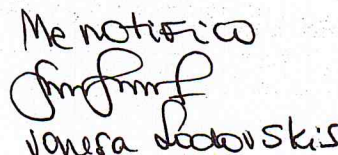 Me notifico
Vanesa Lodovskis